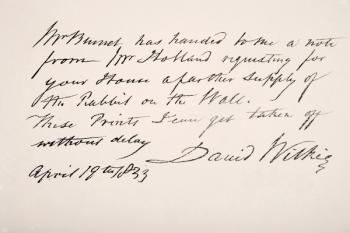 Mr Burnet has handed to me a note
from Mr Holland requesting for
your House a further supply of
the Rabbit on the Wall.
These Prints I can get taken off
without delay
David Wilkie
April 19th 1833